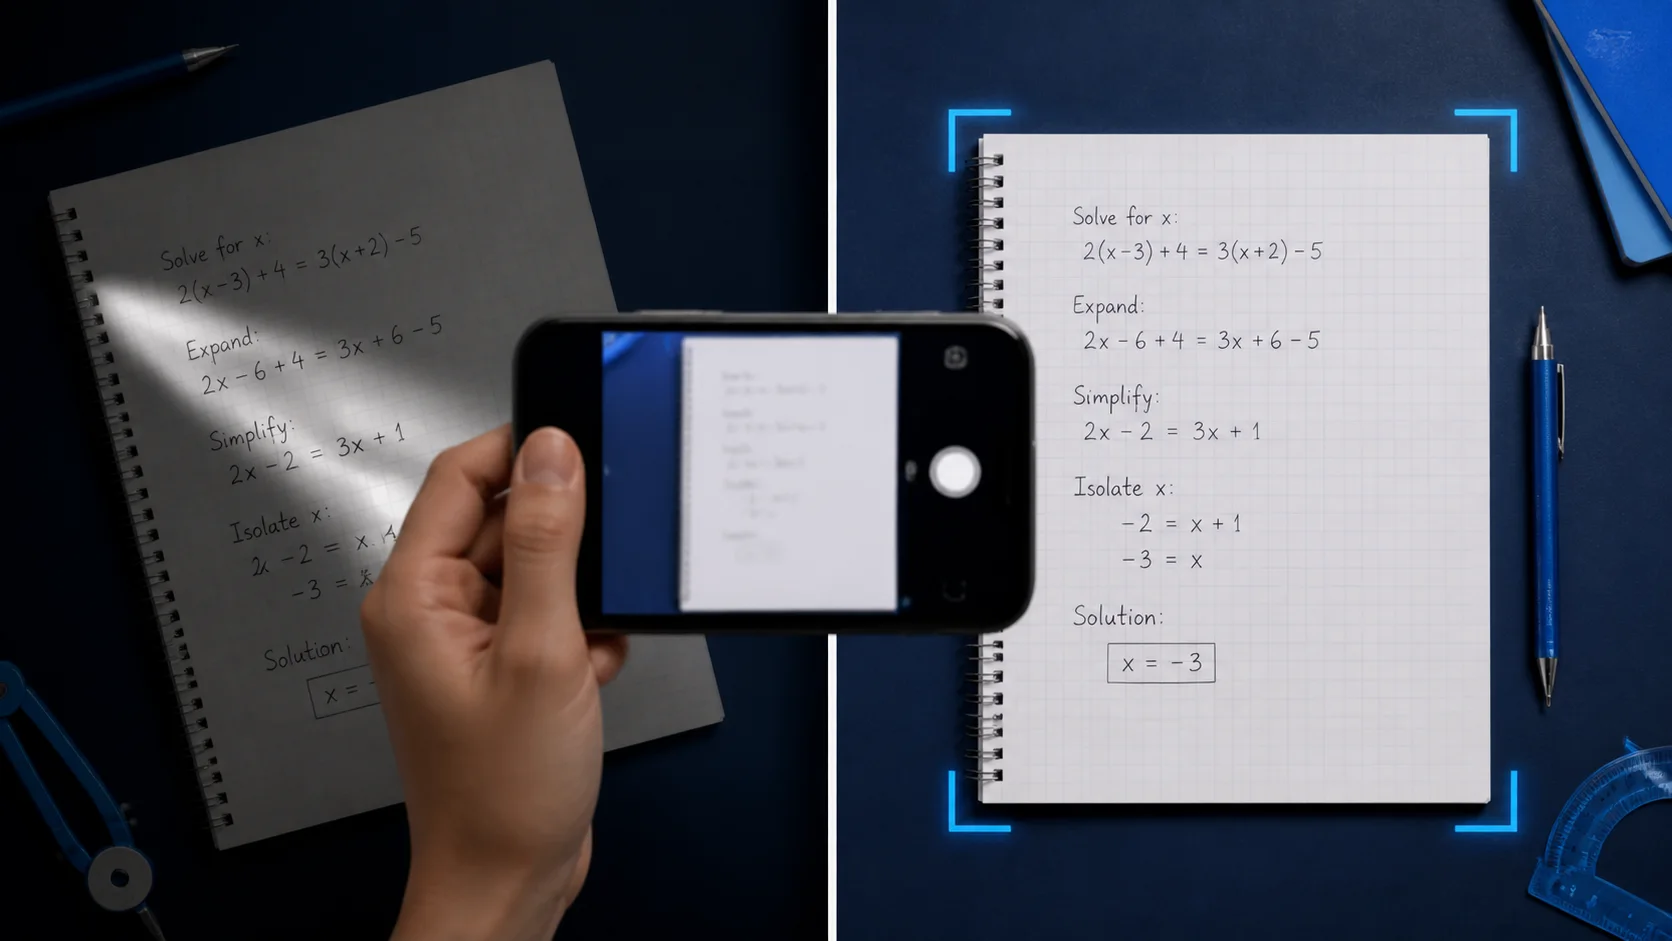 Solve for x:
2(x-3) + 4 = 3(x+2) - 5
Expand:
2x - 6 + 4 = 3x + 6 - 5
Simplify:
2x - 2 = 3x + 1
Isolate x:
-2 = x
-3 =
Solution:
x =
Solve for x:
2(x-3) + 4 = 3(x+2) - 5
Expand:
2x - 6 + 4 = 3x + 6 - 5
Simplify:
2x - 2 = 3x + 1
Isolate x:
-2 = x + 1
-3 = x
Solution:
x = -3